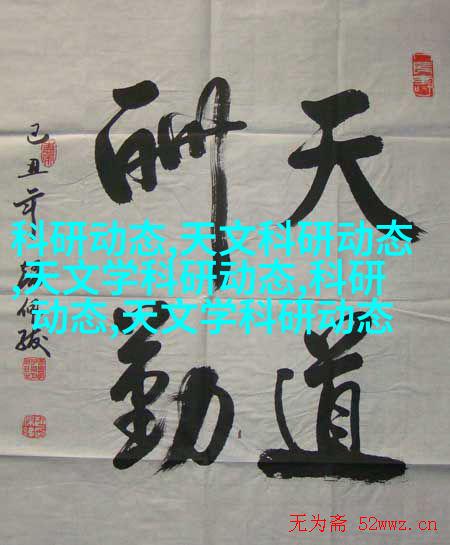 天道
酬勤
己丑年
科研动态,天文科研动态
,天文学科研动态,科研
动态,天文学科研动态
无为斋 52wwz.cn